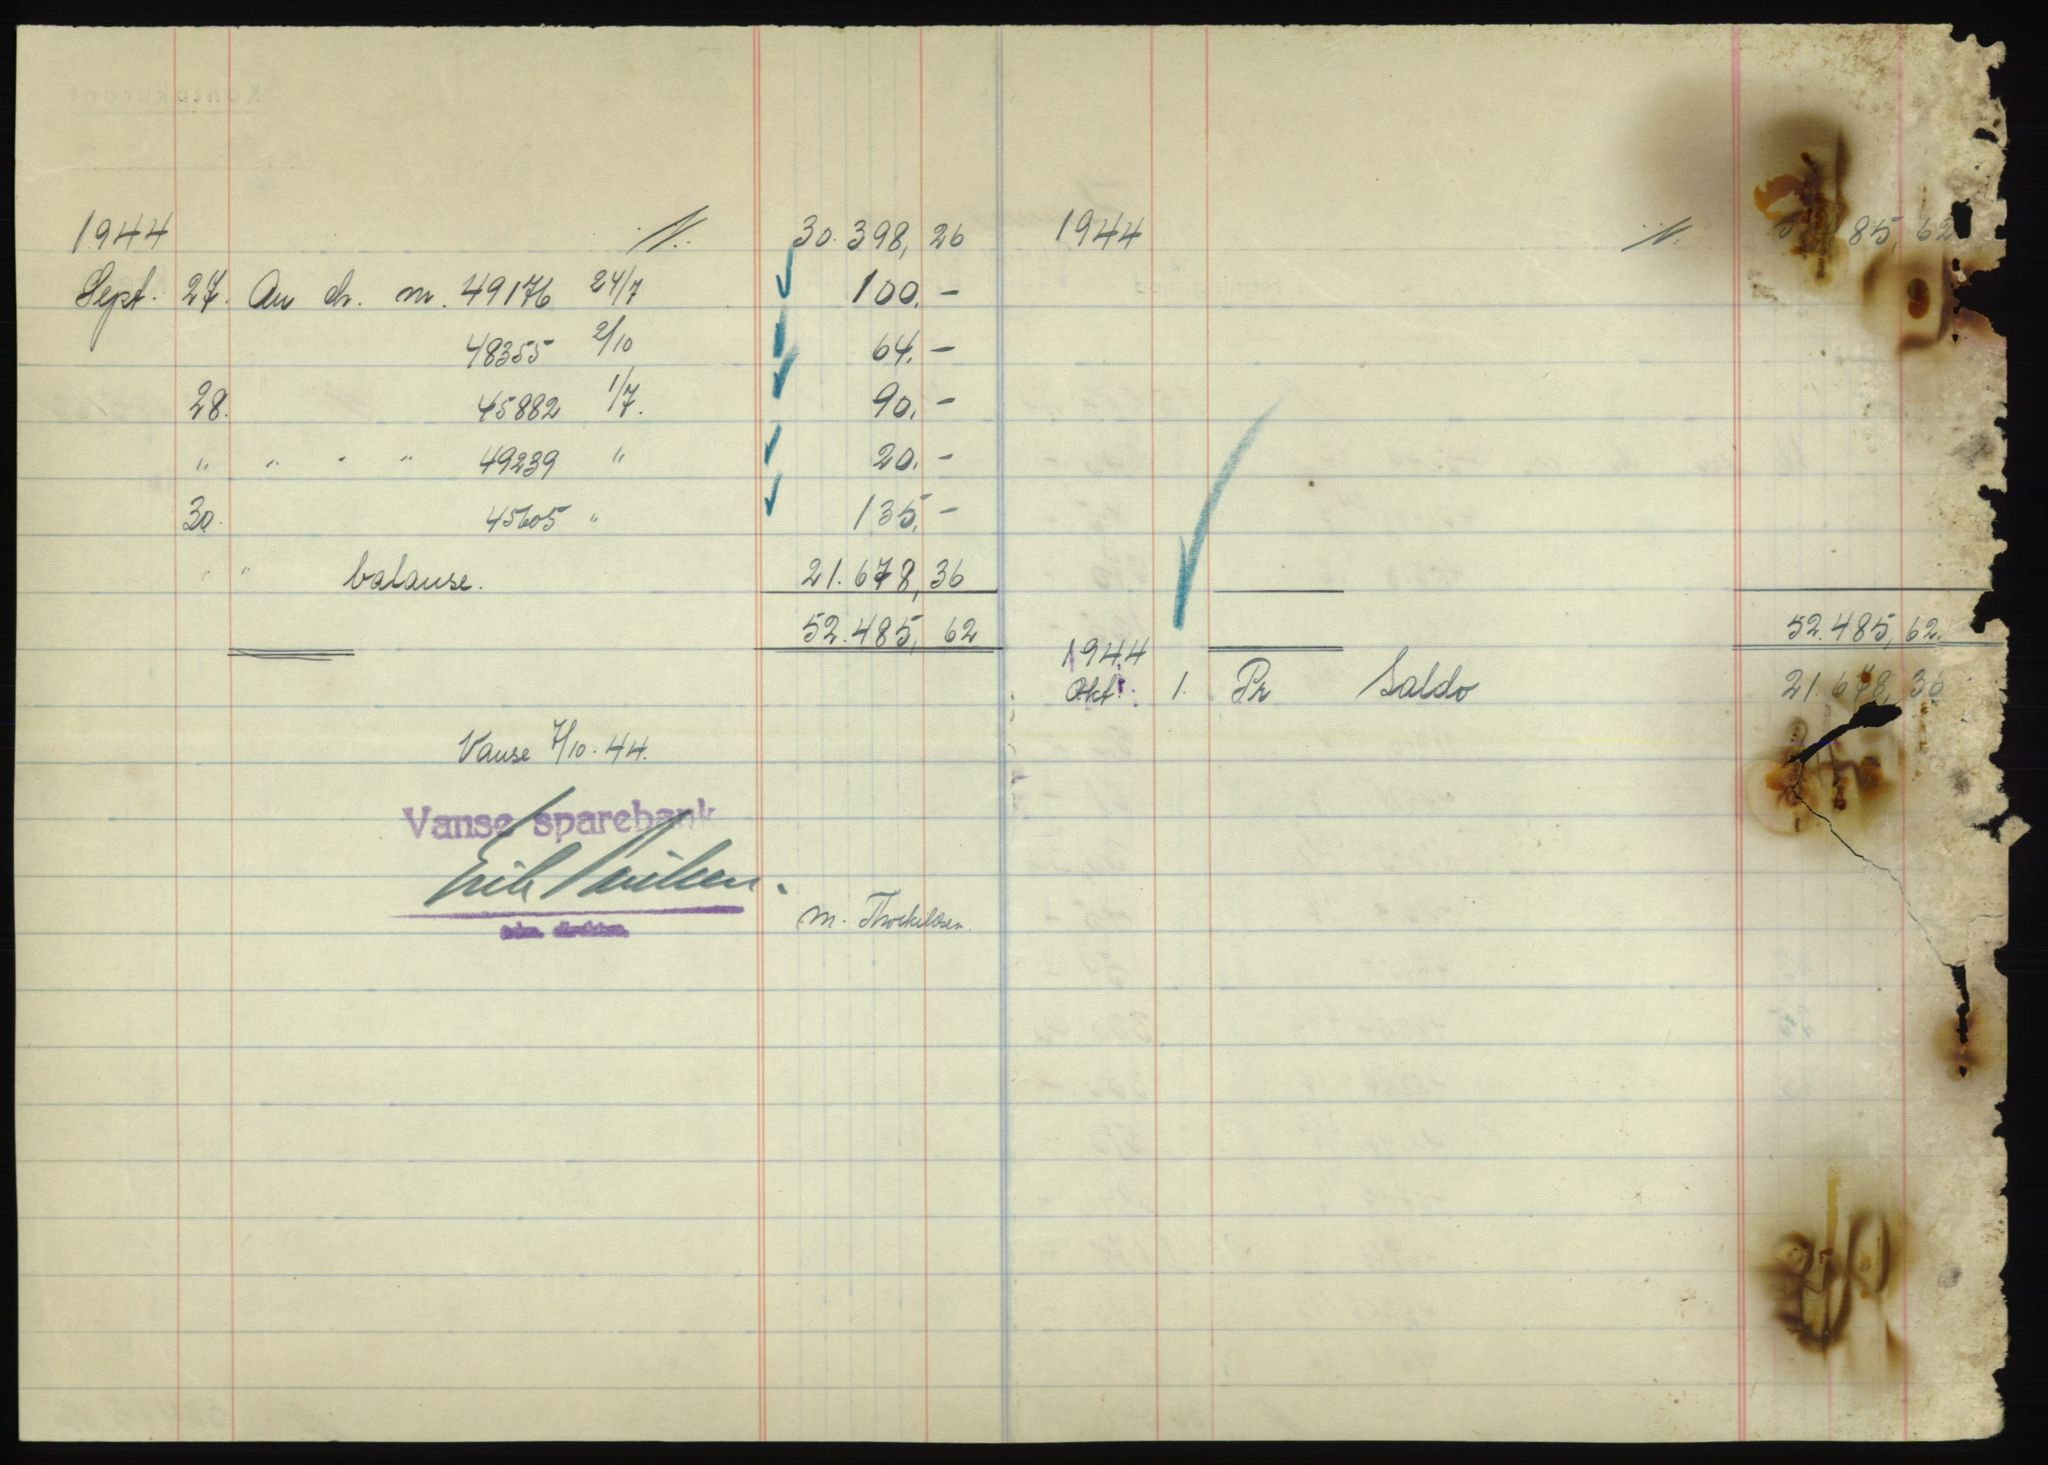 1944 N. 30.398,26
Sept. 27. An ch. nr. 49176 24/7 100.-
48355 2/10 64.-
28. 45882 1/7. 90.-
" " " " 49239 " 20.-
30. 45605 " 135.-
" " balanse. 21.678,36
52.485,62
Vanse 7/10.44.
Vanse sparebank
m. Thorkildsen.
1944 N. 85,62
52.485,62.
1944
Okt. 1. Pr Saldo 21.678,36